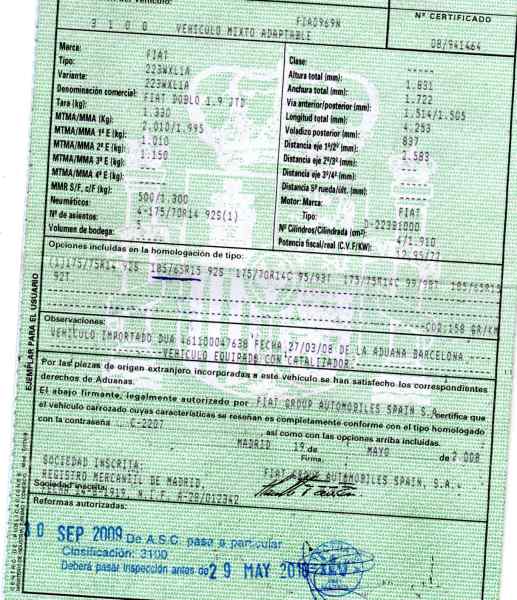 del Vehículo: FIA0969N Nº CERTIFICADO
3 1 0 0 VEHICULO MIXTO ADAPTABLE 08/941464
Marca: FIAT
Tipo: 223WXL1A
Variante: 223WXL1A
Denominación comercial: FIAT DOBLO 1.9 JTD
Tara (kg): 1.330
MTMA/MMA (Kg): 2.010/1.995
MTMA/MMA 1º E (kg): 1.010
MTMA/MMA 2º E (kg): 1.150
MTMA/MMA 3º E (kg): -----
MTMA/MMA 4º E (kg): -----
MMR S/F, c/F (kg): 500/1.300
Neumáticos: 4-175/70R14 92S(1)
Nº de asientos: 5
Volumen de bodega: -----
Clase: -----
Altura total (mm): 1.831
Anchura total (mm): 1.722
Via anterior/posterior (mm): 1.514/1.505
Longitud total (mm): 4.253
Voladizo posterior (mm): 837
Distancia eje 1º/2º (mm): 2.583
Distancia eje 2º/3º (mm): -----
Distancia eje 3º/4º (mm):
Distancia 5ª rueda/últ. (mm):
Motor: Marca: FIAT
Tipo: D-223B1000
Nº Cilindros/Cilindrada (cm³): 4/1.910
Potencia fiscal/real (C.V.F/KW): 12,95/77
Opciones incluidas en la homologación de tipo:
(1)175/75R14 92S 185/65R15 92S 175/70R14C 95/93T 175/75R14C 99/98T 185/65R15
92T
CO2:158 GR/KM
Observaciones:
VEHICULO IMPORTADO DUA 461100047638 FECHA 27/03/08 DE LA ADUANA BARCELONA
VEHICULO EQUIPADO CON CATALIZADOR
Por las piezas de origen extranjero incorporadas a este vehículo se han satisfecho los correspondientes
derechos de Aduanas.
El abajo firmante, legalmente autorizado por FIAT GROUP AUTOMOBILES SPAIN S.A certifica que
el vehículo carrozado cuyas características se reseñan es completamente conforme con el tipo homologado
con la contraseña C-2207 así como con las opciones arriba incluidas.
MADRID 19 de MAYO de 2 008
Firma
SOCIEDAD INSCRITA: FIAT GROUP AUTOMOBILES SPAIN, S.A.
REGISTRO MERCANTIL DE MADRID,
Sociedad inscrita: N.I.F. A-28/012342
Reformas autorizadas:
30 SEP 2009 De A.S.C. pasa a particular
Clasificación: 3100
Deberá pasar inspección antes de 29 MAY 2010
EJEMPLAR PARA EL USUARIO